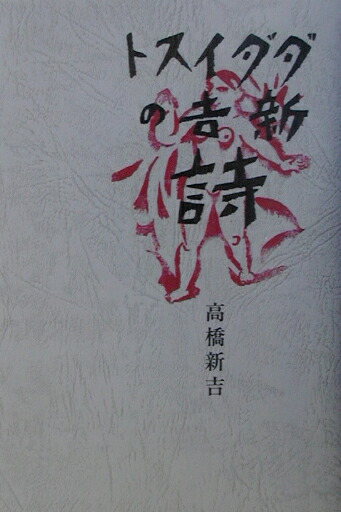 ダダイスト
新吉の
詩
高橋新吉